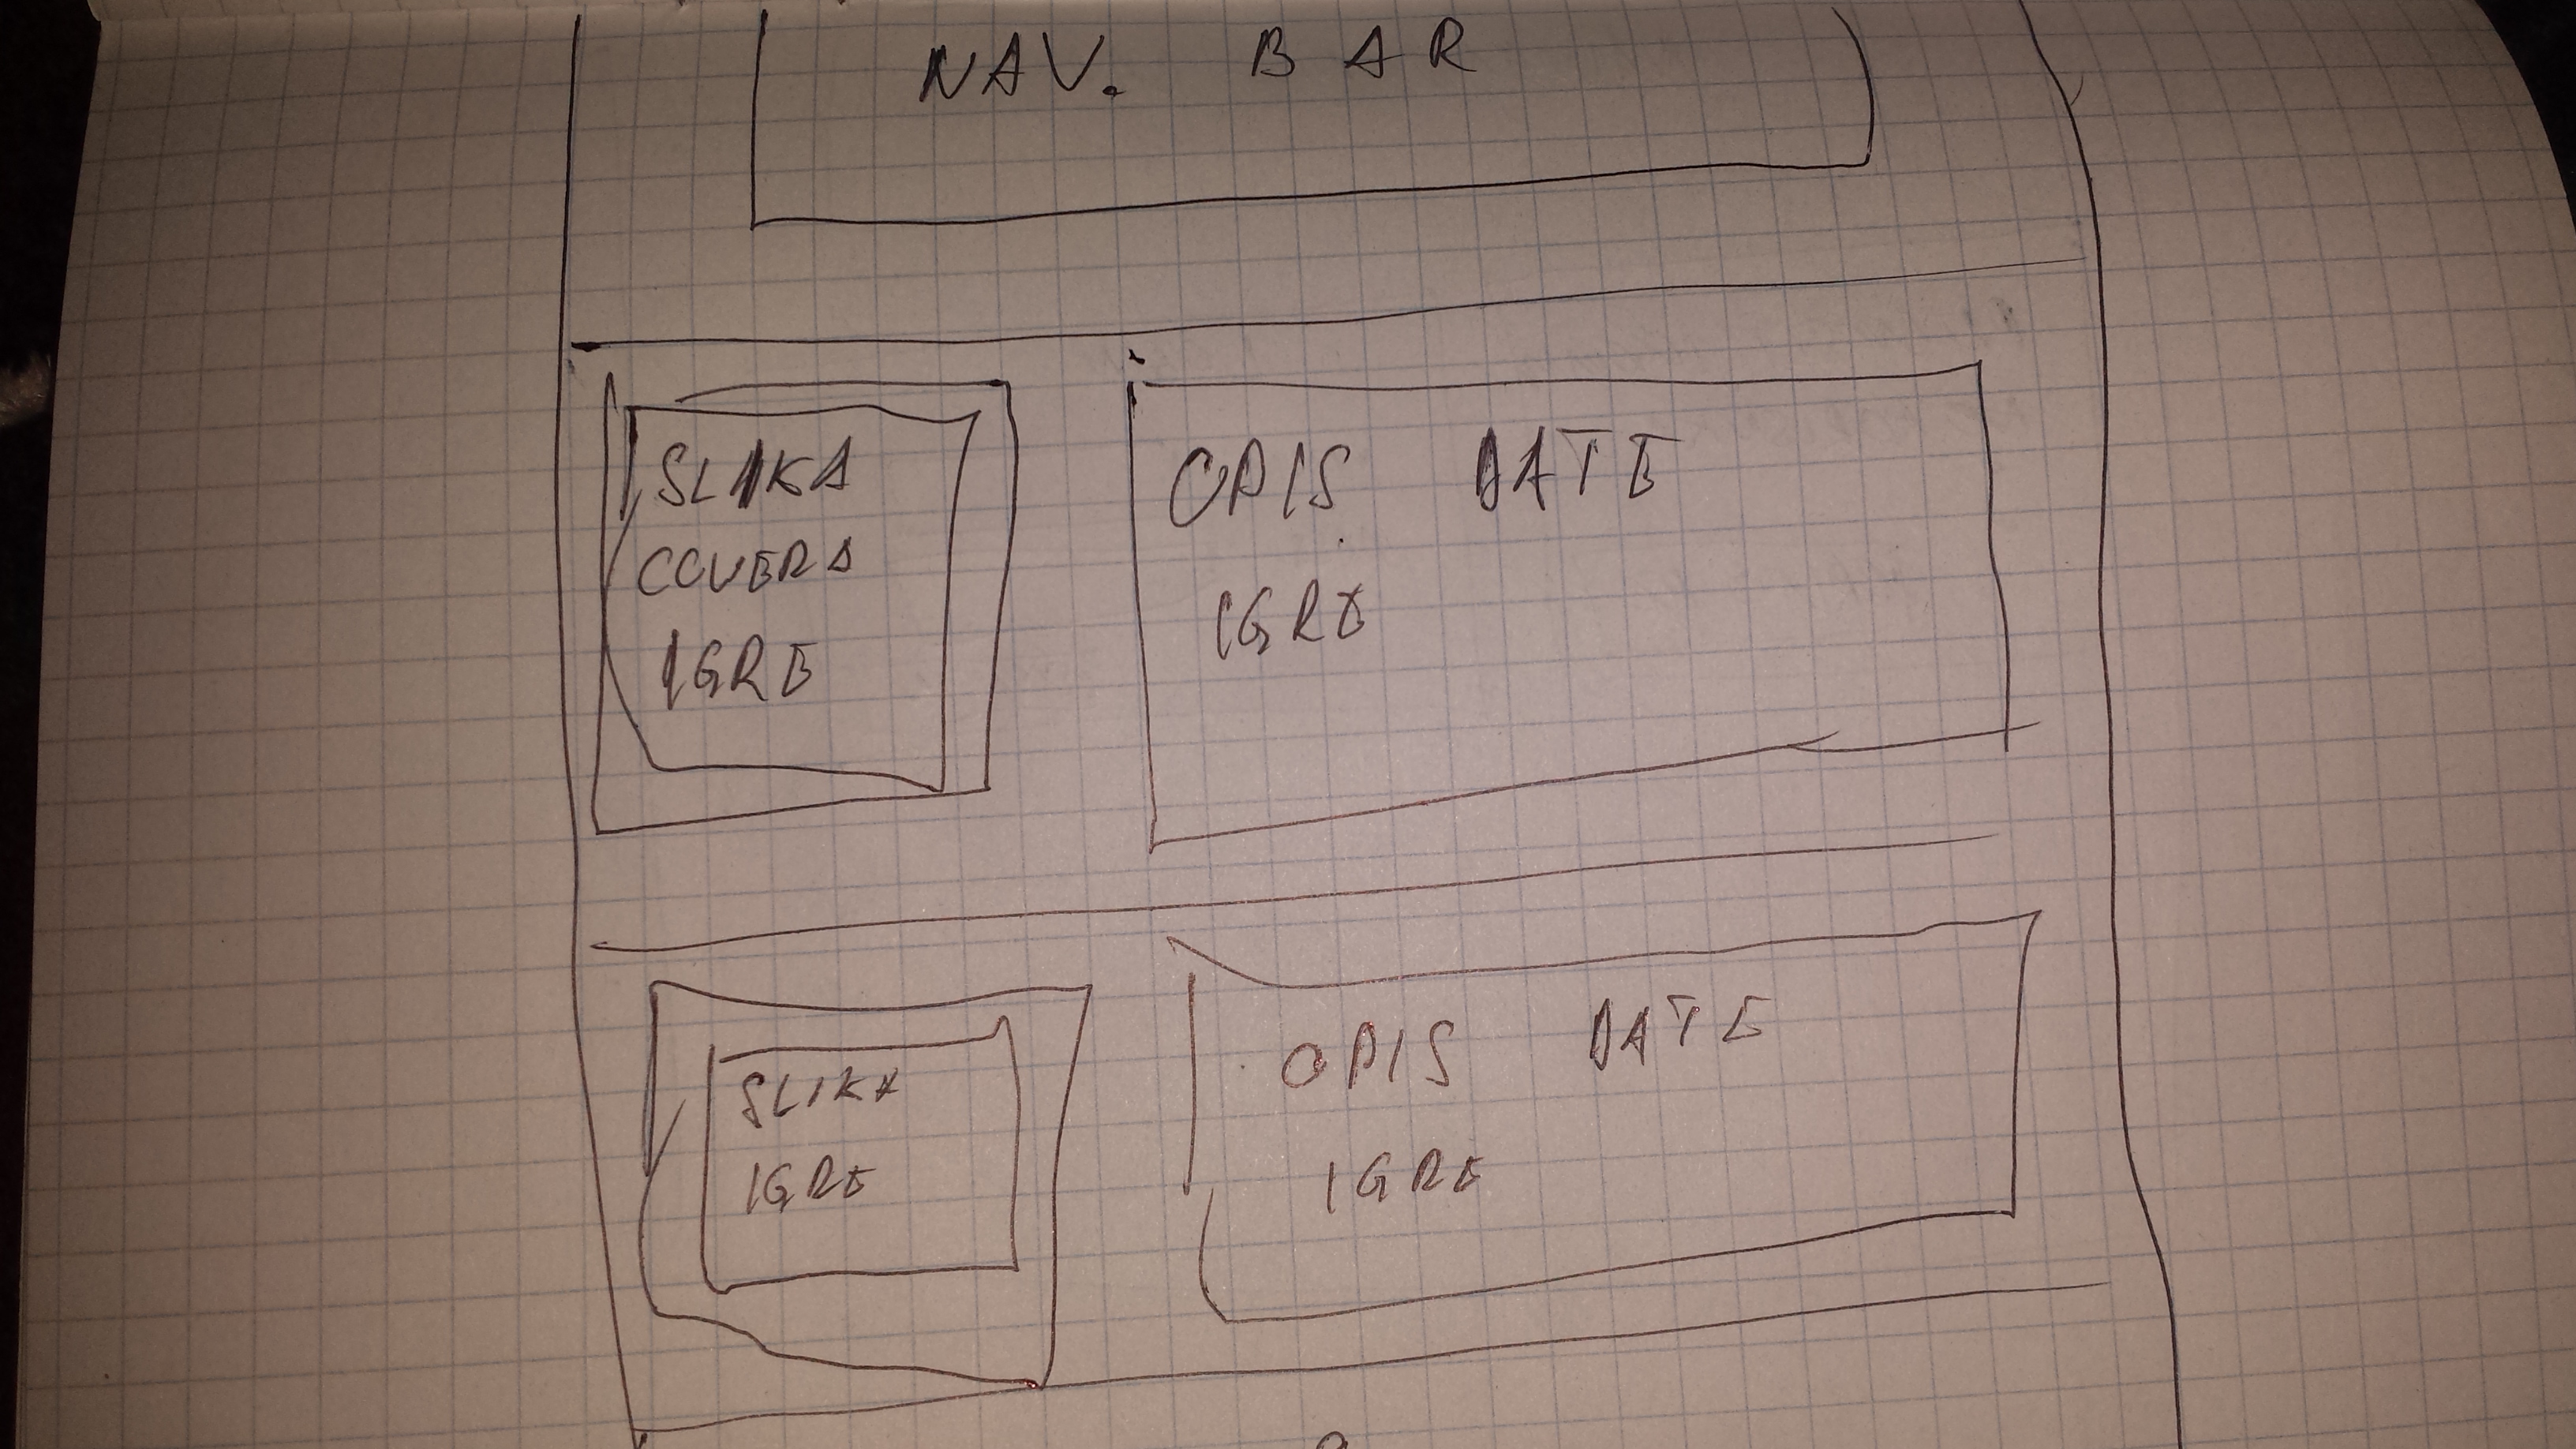 NAV. BAR
SLIKA
COVERA
IGRE
OPIS DATE
IGRE
SLIKA
IGRE
OPIS DATE
IGRE